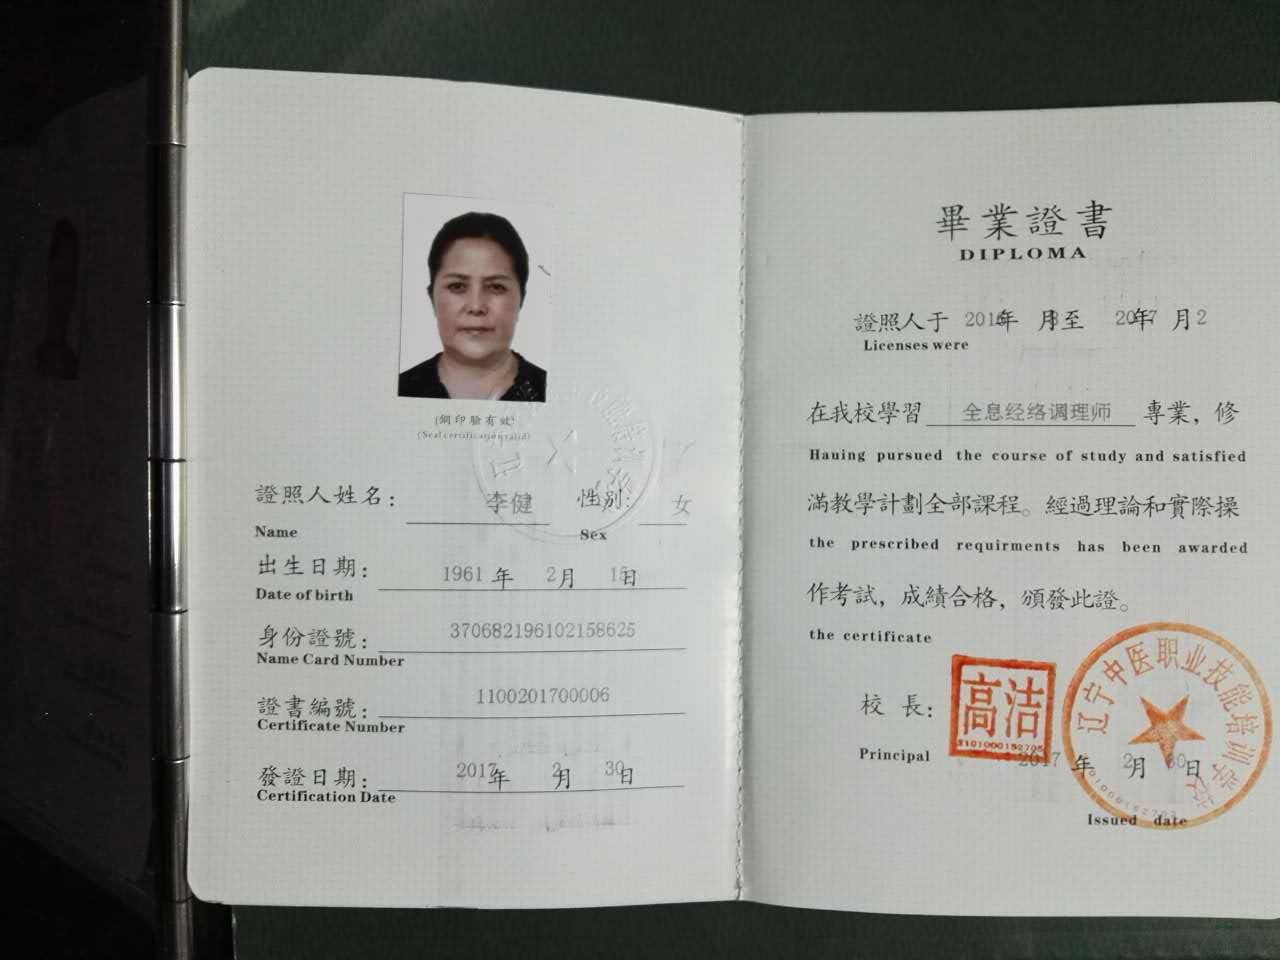 (鋼印驗有效)
(Seal certification valid)
證照人姓名: 李健 性别: 女
Name Sex
出生日期: 1961年 2月 15日
Date of birth
身份證號: 370682196102158625
Name Card Number
證書編號: 1100201700006
Certificate Number
發證日期: 2017年 2月 30日
Certification Date
畢業證書
DIPLOMA
證照人于 2016年 8月至 2017年 2月
Licenses were
在我校學習 全息经络调理师 專業，修
Hauing pursued the course of study and satisfied
滿教學計劃全部課程。經過理論和實際操
the prescribed requirments has been awarded
作考試，成績合格，頒發此證。
the certificate
校 長: 高洁
Principal
2017 年 2月 30日
Issued date
辽宁中医职业技能培训学校